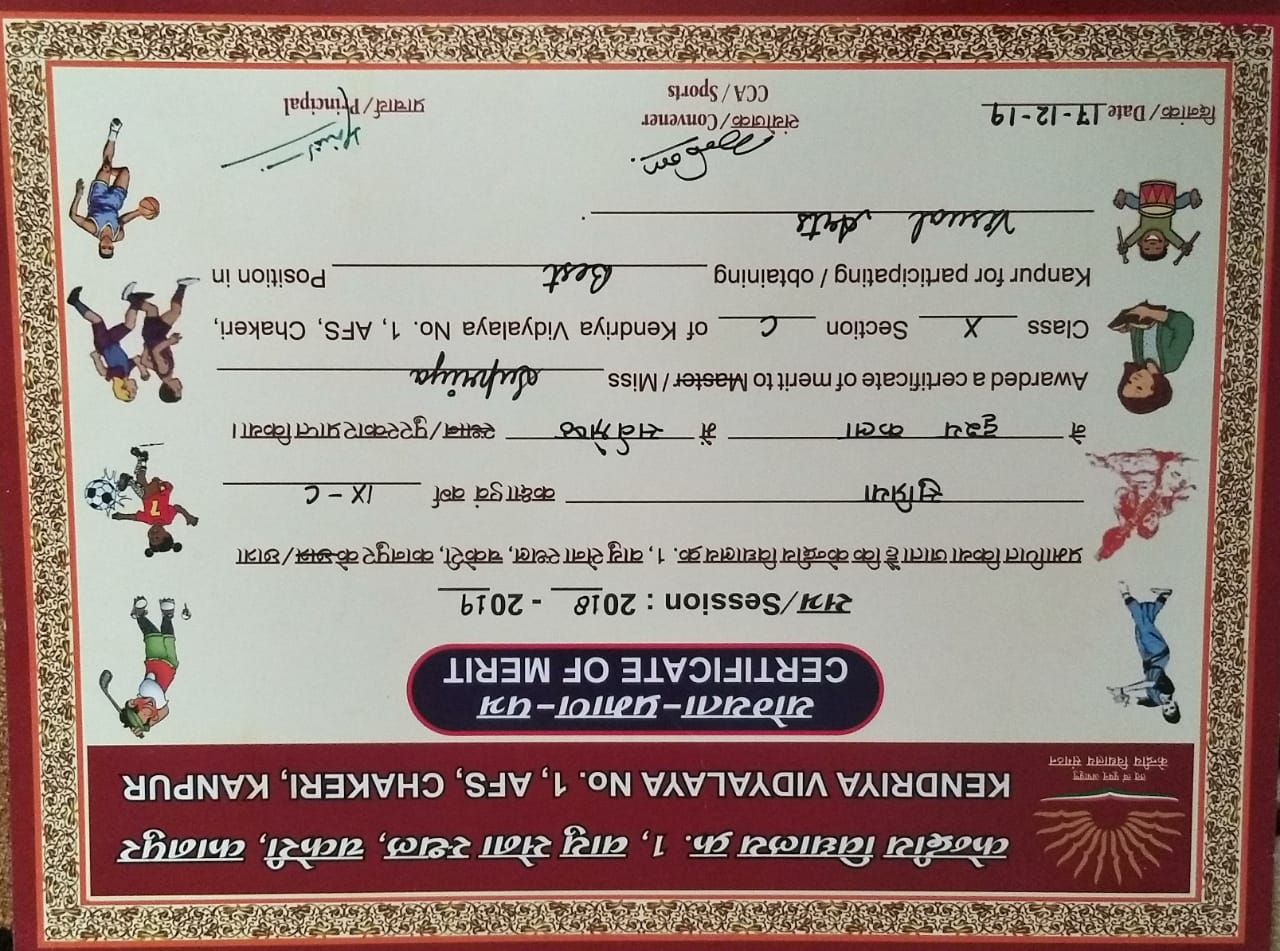 केन्द्रीय विद्यालय क्र. 1, वायु सेना स्थल, चकेरी, कानपुर
KENDRIYA VIDYALAYA No. 1, AFS, CHAKERI, KANPUR
तत् त्वं पूषन् अपावृणु
केन्द्रीय विद्यालय संगठन
योग्यता-प्रमाण-पत्र
CERTIFICATE OF MERIT
सत्र/Session : 2018 - 2019
प्रमाणित किया जाता है कि केन्द्रीय विद्यालय क्र. 1, वायु सेना स्थल, चकेरी, कानपुर के छात्र/छात्रा
सुप्रिया कक्षा एवं वर्ग IX - C
ने दृश्य कला में सर्वश्रेष्ठ स्थान/पुरस्कार प्राप्त किया।
Awarded a certificate of merit to Master / Miss Supriya
Class X Section C of Kendriya Vidyalaya No. 1, AFS, Chakeri,
Kanpur for participating / obtaining Best Position in
Visual Arts.
7
दिनांक/Date 17-12-19
संयोजक/Convener
CCA/Sports
प्राचार्य/Principal